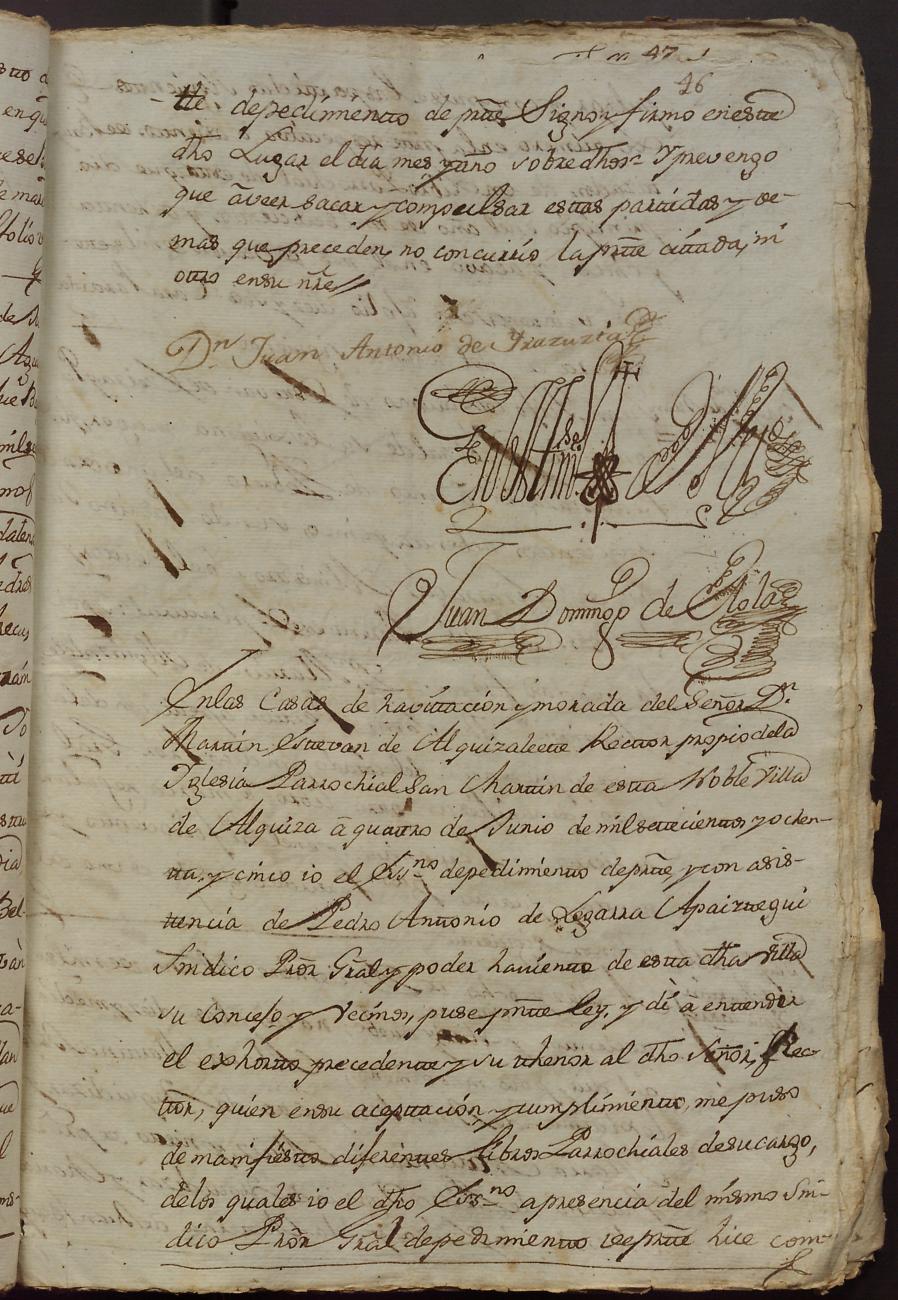 47
46
-tte depedimento de pãte Signo, y firmo en este
dho Lugar el dia mes y año sobredhos Y prevengo
que à veer sacar y compulsar estas partidas y de-
mas que preceden, no concurrio la pãte citada, ni
otro en su nr̃e//
Dn. Juan Antonio de Yrazuzta
En testimo. de Verdad
Juan Domingo de
En las Casas de havitacion y morada del Señor Dn.
Martin Estevan de Alquizalete Rector propio de la
Yglesia Parrochial San Martin de esta Noble Villa
de Alquiza à quatro de Junio de mil setecientos, y ochen-
ta, y cinco io el Essno. depedimiento de pãte, y con asis-
tencia de Pedro Antonio de Legarra Apaiztegui
Sindico Prõr Grãl y poder haviente de esta dha Villa
su Concejo y Vecinos, puse pñte ley, y dì à entender
el exhorto precedente y su thenor al dho Señor, Rec-
tor, quien en su aceptación y cumplimiento, me puso
de manifiesto diferentes Libros Parrochiales de su cargo,
delos quales io el dho Essno. a presencia del mismo Sin-
dico Prõr Grãl depedimiento de pãte hice com-